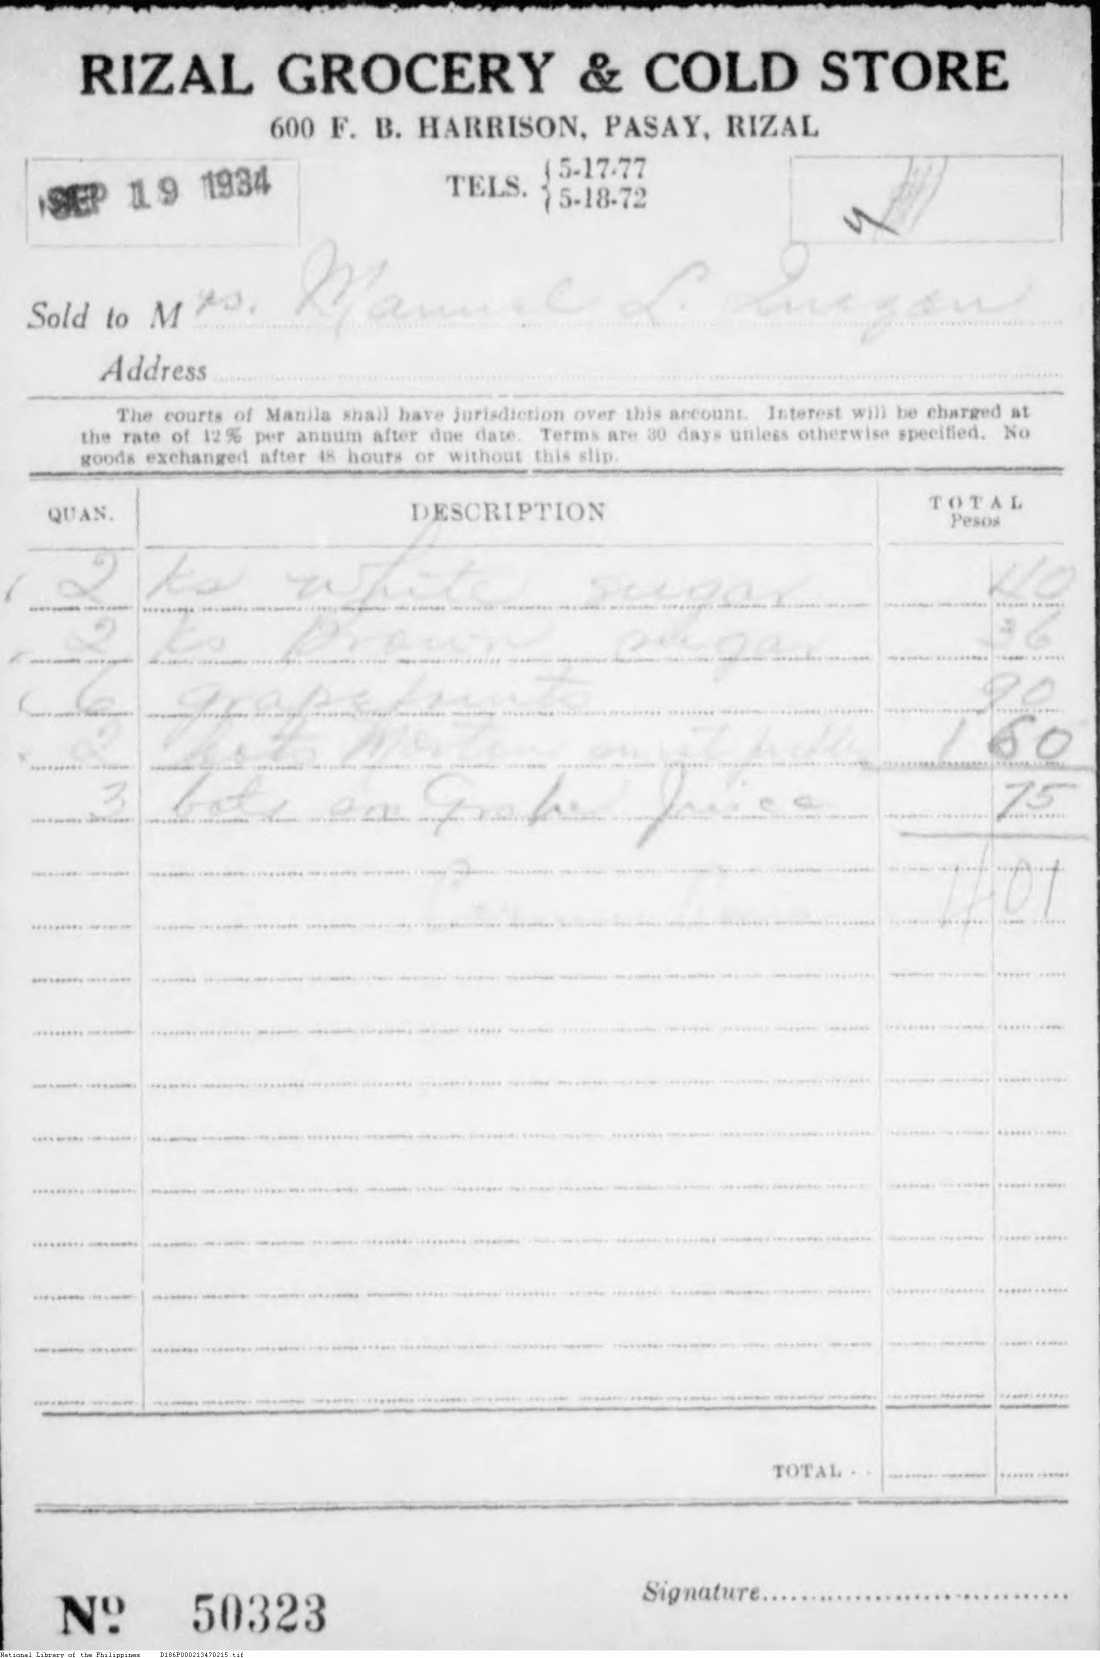 RIZAL GROCERY & COLD STORE
600 F. B. HARRISON, PASAY, RIZAL
SEP 19 1934
TELS. { 5-17-77
{ 5-18-72
Sold to Mrs. Manuel L. Quezon
Address
The courts of Manila shall have jurisdiction over this account. Interest will be charged at
the rate of 12% per annum after due date. Terms are 30 days unless otherwise specified. No
goods exchanged after 48 hours or without this slip.
QUAN. DESCRIPTION TOTAL
Pesos
2 ks white sugar 40
2 ks Brown sugar 36
6 grapefruits 90
2 Morton 1 60
3 bots Grape Juice 75
4 01
TOTAL - -
Signature
No. 50323
National Library of the Philippines D186P000213470215.tif